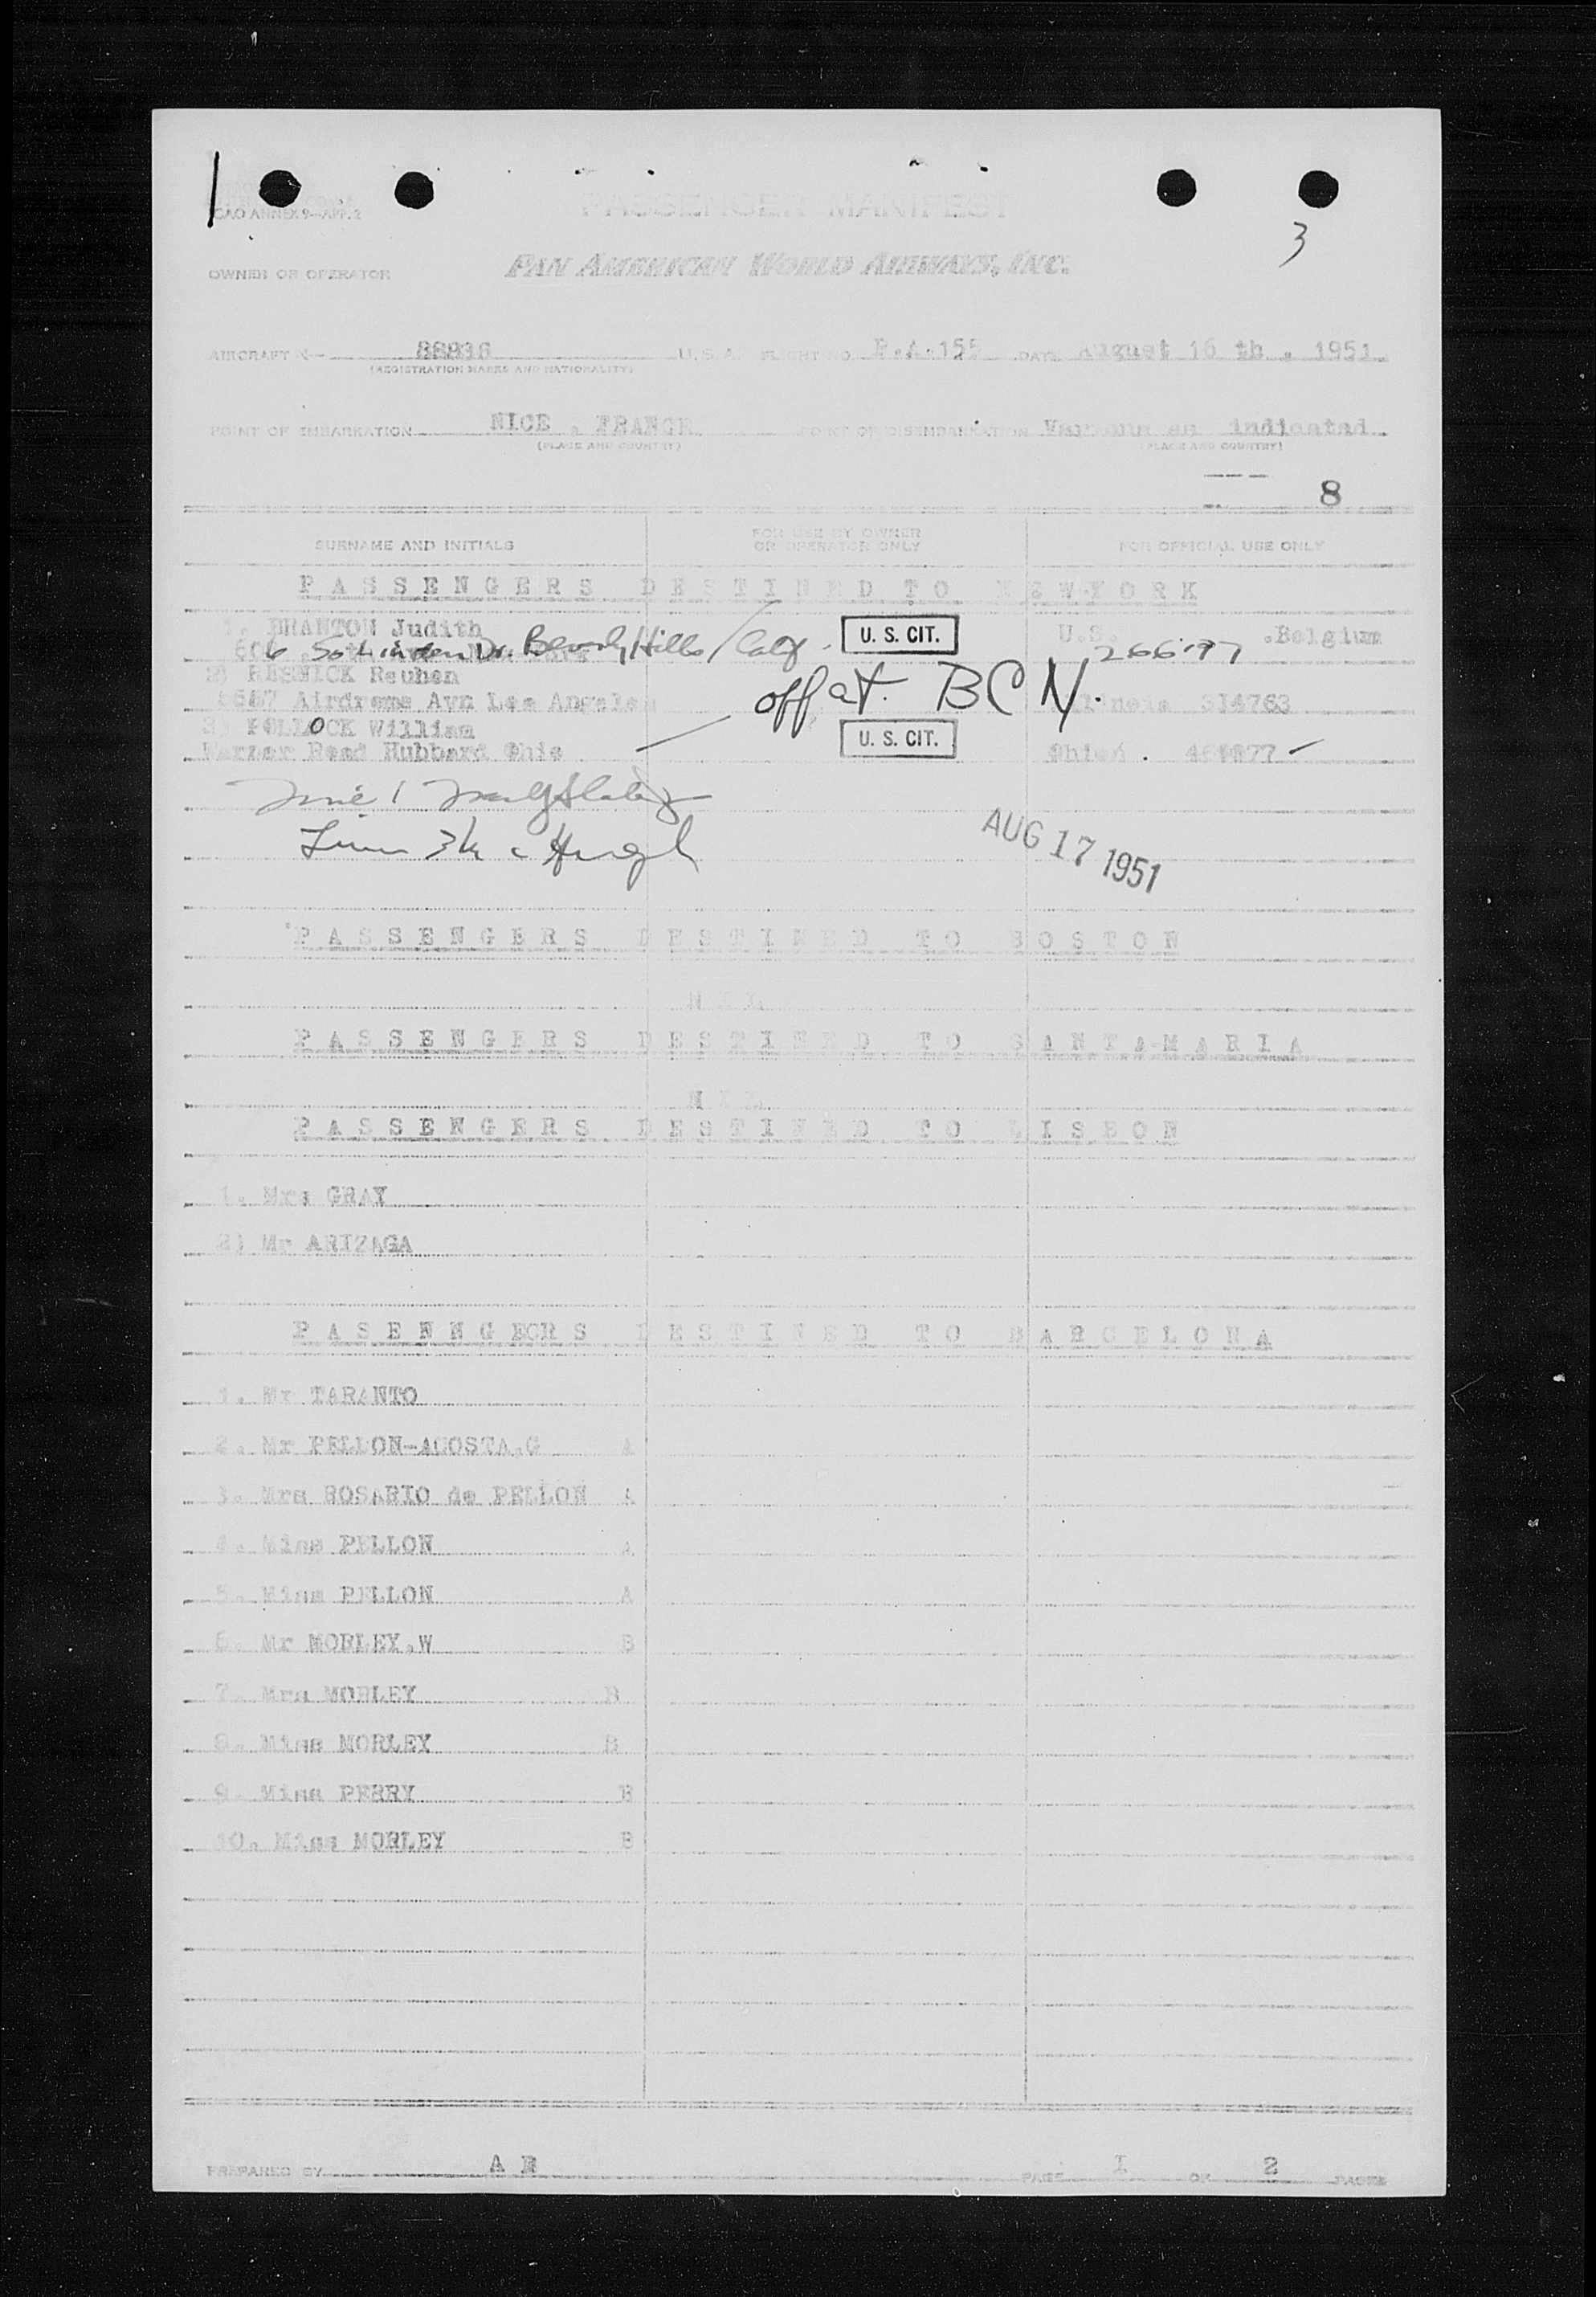 ICAO ANNEX 9—APP. 2
PASSENGER MANIFEST
3
OWNER OR OPERATOR PAN AMERICAN WORLD AIRWAYS, INC.
AIRCRAFT N— 88936 U.S.A. FLIGHT NO. P.A.155 DATE August 16 th . 1951
(REGISTRATION MARKS AND NATIONALITY)
POINT OF EMBARKATION NICE , FRANCE POINT OF DISEMBARKATION Various as indicated
(PLACE AND COUNTRY) (PLACE AND COUNTRY)
8
SURNAME AND INITIALS FOR USE BY OWNER OR OPERATOR ONLY FOR OFFICIAL USE ONLY
P A S S E N G E R S D E S T I N E D T O N E W-Y O R K
1. BRANTON Judith U. S. CIT. U.S. .Belgium
606 So Linden Dr. Beverly Hills / Calif. 266197
2) RESNICK Reuben off at. BCN.
Airdrome Ave Los Angeles 314763
3) POLLOCK William U. S. CIT.
Warner Road Hubbard Ohio
AUG 17 1951
P A S S E N G E R S D E S T I N E D T O B O S T O N
N I L
P A S S E N G E R S D E S T I N E D T O S A N T A-M A R I A
N I L
P A S S E N G E R S D E S T I N E D T O L I S B O N
1. Mrs GRAY
2) Mr ARIZAGA
P A S E N N G EOR S D E S T I N E D T O B A R C E L O N A
1. Mr TARANTO
2. Mr PELLON-ACOSTA,G A
3. Mrs ROSARIO de PELLON A
4. Miss PELLON A
5. Miss PELLON A
6. Mr MORLEY,W B
7. Mrs MORLEY B
8. Miss MORLEY B
9. Miss PERRY B
10. Miss MORLEY B
PREPARED BY A E PAGE I OF 2 PAGES